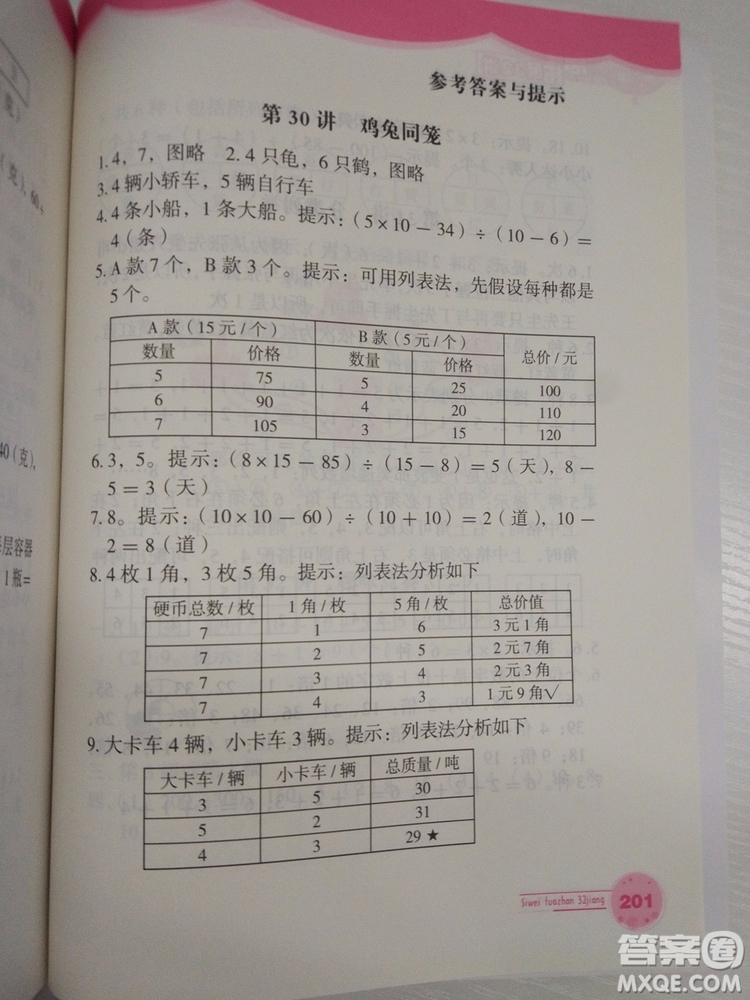 参考答案与提示
第 30 讲 鸡兔同笼
1. 4，7，图略 2. 4 只龟，6 只鹤，图略
3. 4 辆小轿车，5 辆自行车
4. 4 条小船，1 条大船。提示：（5×10－34）÷（10－6）＝
4（条）
5. A 款 7 个，B 款 3 个。提示：可用列表法，先假设每种都是
5 个。
A 款（15 元 / 个） B 款（5 元 / 个） 总价 / 元
数量 价格 数量 价格
5 75 5 25 100
6 90 4 20 110
7 105 3 15 120
6. 3，5。提示：（8×15－85）÷（15－8）＝5（天），8－
5＝3（天）
7. 8。提示：（10×10－60）÷（10＋10）＝2（道），10－
2＝8（道）
8. 4 枚 1 角，3 枚 5 角。提示：列表法分析如下
硬币总数 / 枚 1 角 / 枚 5 角 / 枚 总价值
7 1 6 3 元 1 角
7 2 5 2 元 7 角
7 3 4 2 元 3 角
7 4 3 1 元 9 角√
9. 大卡车 4 辆，小卡车 3 辆。提示：列表法分析如下
大卡车 / 辆 小卡车 / 辆 总质量 / 吨
3 5 30
5 2 31
4 3 29 ★
Siwei tuozhan 32jiang
201
（克），60÷
40（克），
层容器
1 瓶＝
答案圈
MXQE.COM